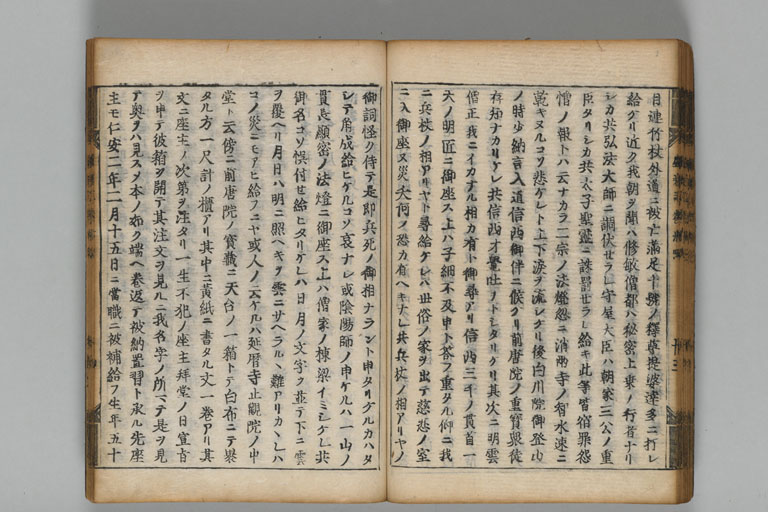 目連竹杖外道ニ被亡満足十號ノ釋尊提婆達多ニ打レ
給ケリ近ク我朝ヲ聞ハ修敏僧都ハ秘密上乗ノ行者ナリ
シカ共弘法大師ニ調伏セラレ守屋大臣ハ朝家三公ノ重
臣タリシカ共太子聖靈ニ誅罰セラレ給キ此等皆宿罪怨
憎ノ報トハ云ナカラ二宗ノ法燈忽ニ消両寺ノ智水速ニ
乾キヌルコソ悲ケレト上下涙ヲ流シケリ後白川院御登山
ノ時少納言入道信西御伴ニ候ケリ前唐院ノ重寶衆徒
存知ナカリケレ共信西才覺吐ソトシタリケリ其次ニ明雲
僧正我ニイカナル相カ有ト御尋アリ信西三千ノ貫首一
天ノ明匠ニ御座ス上ハ子細不及申ト答フ重タル仰ニ我
ニ兵杖ノ相アリヤト尋給ケレハ世俗ノ家ヲ出テ慈悲ノ室
ニ入御座ヌ災夭何ノ恐カ有ヘキナレ共兵杖ノ相アリヤノ
御詞怪ク侍テ是即兵死ノ御相ナラント申タリケルカハタ
シテ角成給ヒケルコソ哀ナレ或陰陽師ノ申ケルハ一山ノ
貫長顕密ノ法燈ニ御座ス上ハ僧家ノ棟梁イミシケレ共
御名コソ悞付セ給ヒタリケレハ日月ノ文字ヲ並テ下ニ雲
ヲ覆ヘリ月日ハ明ニ照ヘキヲ雲ニサヘラルヽ難アリカヽレハ
コノ災ニモアヒ給フニヤ或人ノ云ケルハ延暦寺止觀院ノ中
堂ト云傍ニ前唐院ノ寶藏ニ天台ノ一箱トテ白布ニテ裹
タル方一尺計ノ櫃アリ其中ニ黄紙ニ書タル文一巻アリ其
文ニ座主ノ次第ヲ注タリ一生不犯ノ座主拝堂ノ日宣旨
ヲ申テ彼箱ヲ開テ其注文ヲ見ルニ我名字ノ所マテ是ヲ見
テ奥ヲハ見ス又本ノ如ク端ヘ巻返テ被納置習ト承ル先座
主モ仁安二年二月十五日ニ當職ニ被補給フ生年五十